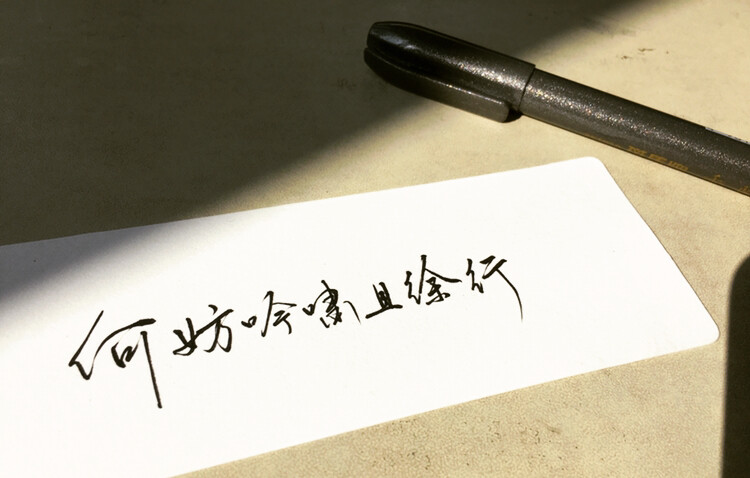 何妨吟啸且徐行